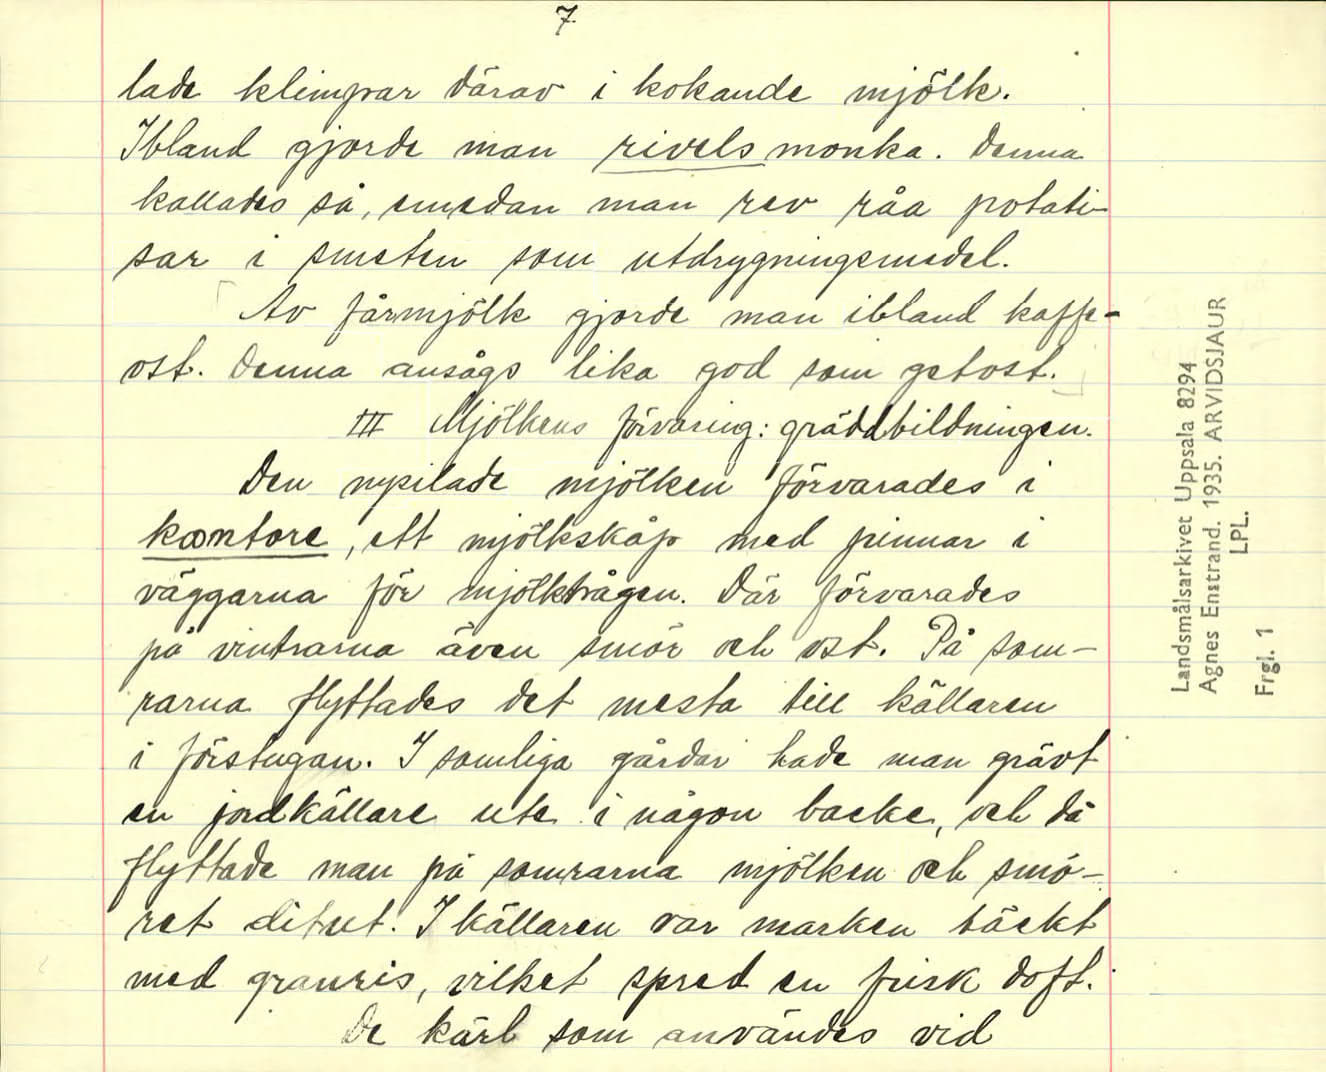 7
lade klimpar därav i kokande mjölk.
Ibland gjorde man rivelsmonka. Denna
kallades så, emedan man rev råa potati-
sar i smeten som utdrygningsmedel.
Av fårmjölk gjorde man ibland kaffe-
ost. Denna ansågs lika god som getost.
III Mjölkens förvaring: gräddbildningen.
Den nysilade mjölken förvarades i
kontore, ett mjölkskåp med pinnar i
väggarna för mjölktrågen. Där förvarades
på vintrarna även smör och ost. På som-
rarna flyttades det mesta till källaren
i förstugan. I somliga gårdar hade man grävt
en jordkällare ute i någon backe, och då
flyttade man på somrarna mjölken och smö-
ret ditut. I källaren var marken täckt
med granris, vilket spred en frisk doft.
De kärl som användes vid
Landsmålsarkivet Uppsala 8294
Agnes Enstrand. 1935. ARVIDSJAUR
LPL.
Frgl. 1